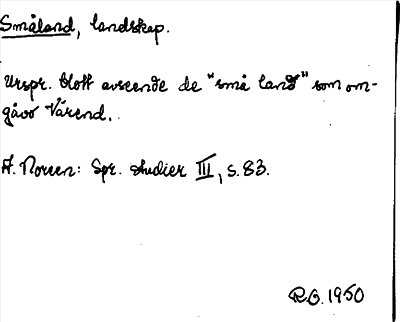 Småland, landskap.
Urspr. blott avseende de "små land" som om-
gåvo Värend.
A. Noreen: Spr. studier III, s. 83.
R.G. 1950